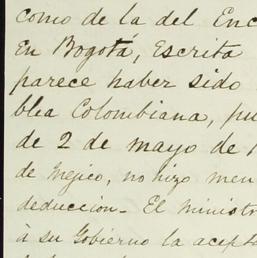 como de la del Enc
en Bogotá, Escrita
parece haber sido
blea Colombiana, pu
de 2 de mayo de 1
de Mejico, no hizo men
deduccion_ El Ministr
à su Gobierno la acept